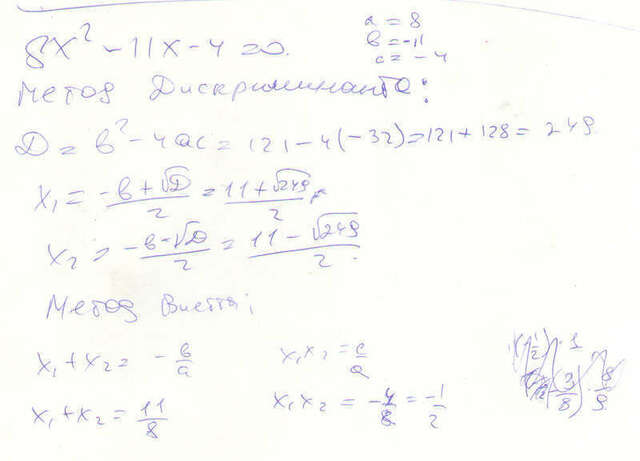 8x² - 11x - 4 = 0.
a = 8
в = -11
c = -4
Метод Дискриминанта:
D = в² - 4ac = 121 - 4(-32) = 121 + 128 = 249
x₁ = (-в + √D)/2 = (11 + √249)/2
x₂ = (-в - √D)/2 = (11 - √249)/2.
Метод Виетта;
x₁ + x₂ = -в/a x₁x₂ = c/a
x₁ + x₂ = 11/8 x₁x₂ = -4/8 = -1/2